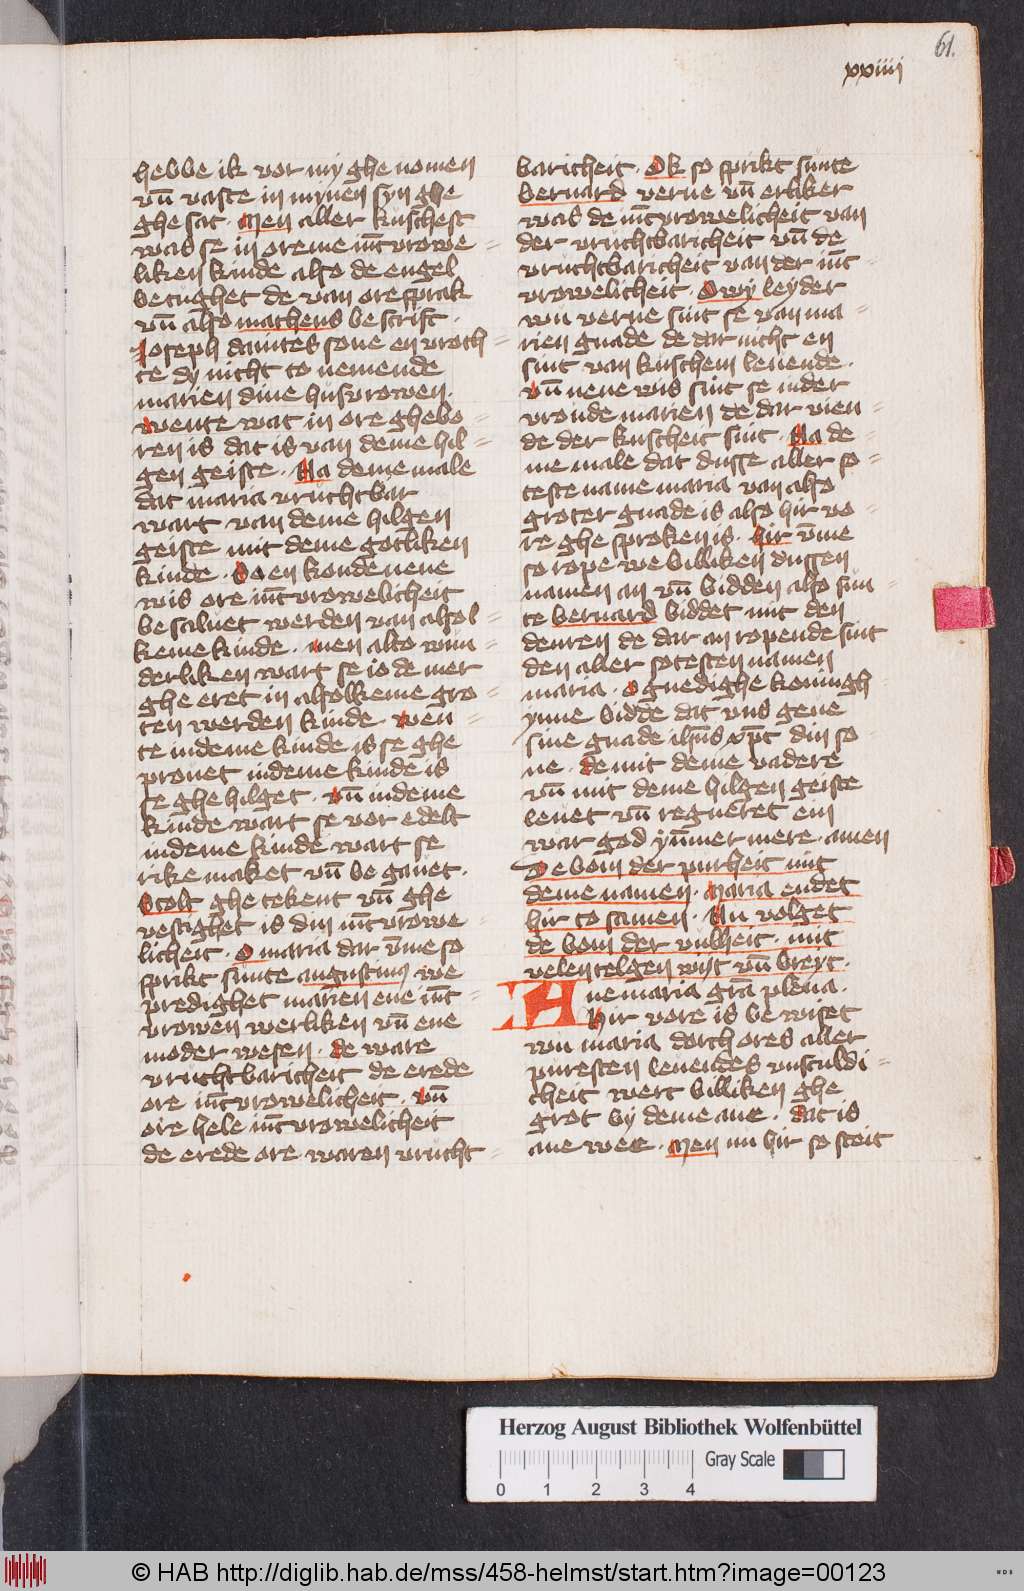 61.
xxiiii
hebbe ik vor my ghe nomen
vn̄ vaste in mynen syn ghe
ghe sat · Men aller kuschest
was se in oreme iūcvrowe
liken kinde also de engel
betughet de van ore sprak
vn̄ also matheus bescrift ·
Joseph dauites sone en vroch
te dy nicht to nemende
marien dine husvrowen ·
wente wat in ore ghebo
ren is dat is van deme hil
gen geiste · Na deme male
dat maria vruchtbar
wart van deme hilgen
geiste mit deme gotliken
kinde · So en konde nene
wis ore iūcvrowelicheit
besaluet werden van alsol
keme kinde · men alto wun
derliken wart se io de mer
ghe eret in alsolkeme gro
ten werden kinde · wen
te in deme kinde is se ghe
prouet in deme kinde is
se ghe hilget · vn̄ in deme
kinde wart se vor edelt
in deme kinde wart se
rike maket vn̄ be gauet ·
Stolt ghe tekent vn̄ ghe
vestighet is din iūcvrowe
licheit · O maria dar v̄me so
sprikt sunte augustinus we
predighet marien ene iūc
vrowen werliken vn̄ ene
moder wesen · de ware
vruchtbaricheit de erede
ore iūcvrowelicheit · vn̄
ore hele iūcvrowelicheit
de erede ore waren vrucht
baricheit · Ok so sprikt sunte
bernard verne vn̄ erliker
was de iūcvrowelicheit van
der vruchtbaricheit vn̄ de
vruchtbaricheit van der iūc
vrowelicheit · Owy leyder
wu verne sint se van ma
rien gnade de dar nicht en
sint van kuschem leuende ·
vn̄ nene wis sint se in der
vronde marien de dar vien
de der kuscheit sint · Na de
me male dat dusse aller so
teste name maria van also
groter gnade is also hir vo
re ghe sproken is · hir v̄me
so rope we billiken dussen
namen an vn̄ bidden also sun
te bernard biddet mit den
denren de dar an ropende sint
den aller sotesten namen
maria · O gnedighe koningh
ynne bidde dat vns geue
sine gnade ih̄us xp̄c din so
ne · de mit deme vadere
vn̄ mit deme hilgen geiste
leuet vn̄ regneret ein
war god ȳmer mere · amen
De bom der purheit mit
deme namen · Maria endet
hir to samen · Nu volget
de bom der vulheit · mit
velen telgen wyt vn̄ breyt ·
Aue maria grā plena ·
Hir vore is be wiset
wu maria dorch ores aller
puresten leuendes vnsculdi
cheit wert billiken ghe
grot by deme aue · dat is
ane wee · Men nu hir so steit
Herzog August Bibliothek Wolfenbüttel
Gray Scale
0 1 2 3 4
© HAB http://diglib.hab.de/mss/458-helmst/start.htm?image=00123